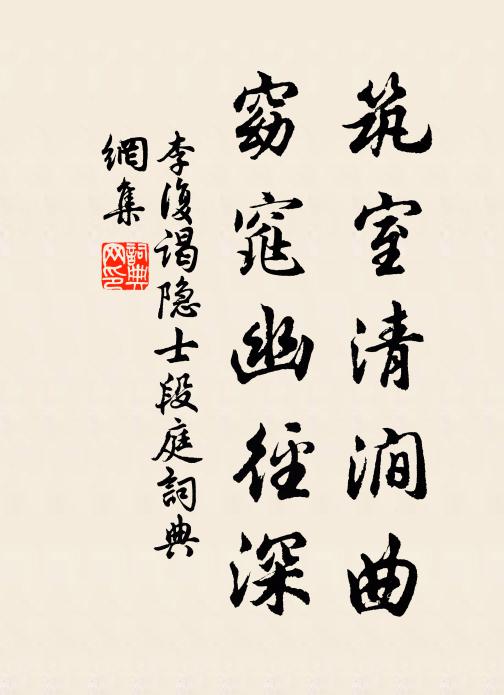 筑室清涧曲
窈窕幽径深
李復谒隐士段庭詞典
網集
詞典网印